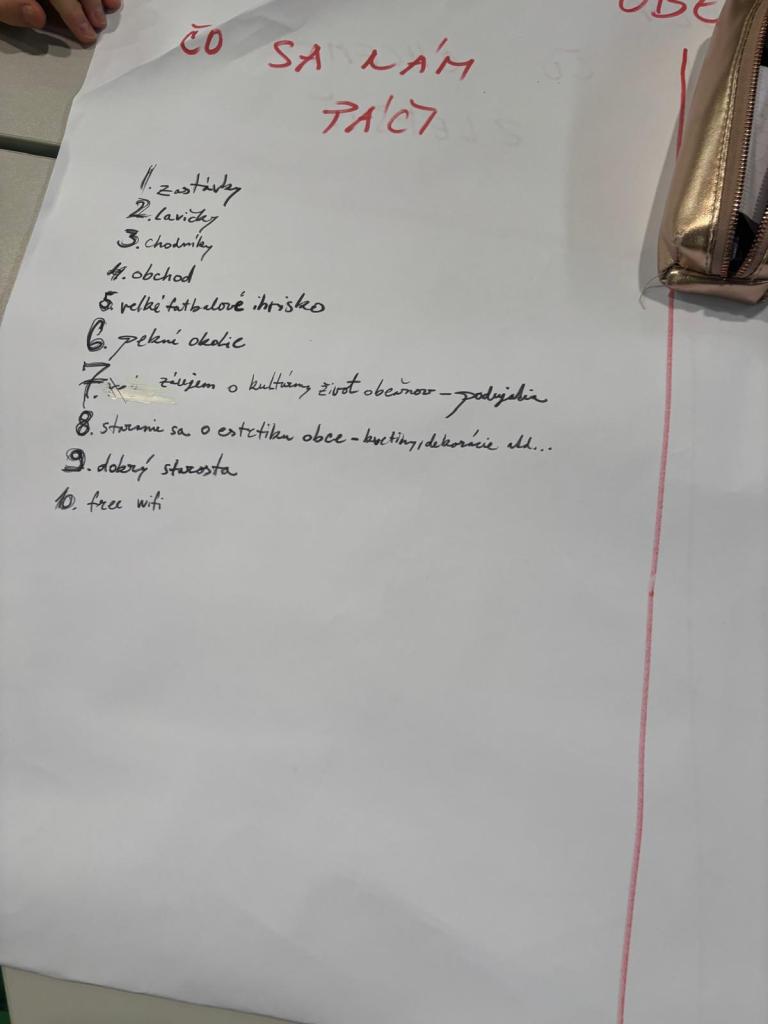 OBE
ČO SA NÁM
PÁČI
1. zastávky
2. lavičky
3. chodníky
4. obchod
5. velké futbalové ihrisko
6. pekné okolie
7. záujem o kultúrny život občanov - podujatia
8. staranie sa o estetiku obce - kvetiny, dekorácie atd...
9. dobrý starosta
10. free wifi